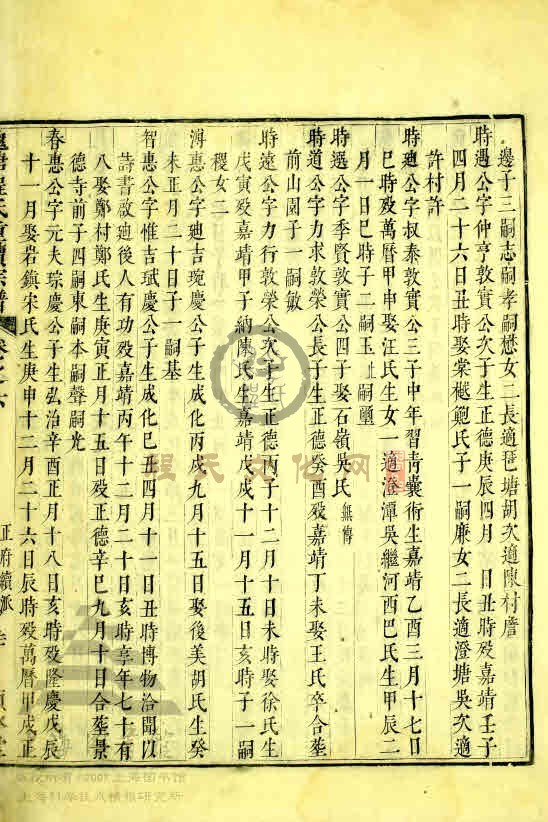 邊子三嗣志嗣孝嗣懋女二長適琶塘胡次適陳村詹
時遇公字仲亨敦實公次子生正德庚辰四月 日丑時殁嘉靖壬子
四月二十六日丑時娶棠樾鮑氏子一嗣廉女二長適澄塘吳次適
許村許
時廸公字叔泰敦實公三子中年習青囊術生嘉靖乙酉三月十七日
巳時殁萬曆甲申娶汪氏生女一適澄潭吳繼河西巴氏生甲辰二
月一日巳時子二嗣玉嗣璽
時選公字季賢敦實公四子娶石嶺吳氏 無傳
時道公字力求敦榮公長子生正德癸酉殁嘉靖丁未娶王氏卒合塟
前山園子一嗣敏
時遠公字力行敦榮公次子生正德丙子十二月十日未時娶徐氏生
戊寅殁嘉靖甲子納陳氏生嘉靖戊戌十一月十五日亥時子一嗣
稷女二
溥惠公字廸吉琬慶公子生成化丙戌九月十五日娶後美胡氏生癸
未正月二十日子一嗣基
智惠公字惟吉珷慶公子生成化巳丑四月十一日丑時博物洽聞以
詩書啟廸後人有功殁嘉靖丙午十二月二十日亥時享年七十有
八娶鄭村鄭氏生庚寅正月十五日殁正德辛巳九月十日合塟景
德寺前子四嗣東嗣本嗣聲嗣光
春惠公字元夫琮慶公子生弘治辛酉正月十八日亥時殁隆慶戊辰
十一月娶岩鎮宋氏生庚申十二月二十六日辰時殁萬曆甲戌正
程氏
宗譜
卷之六
正府續派
程氏文化网
版权所有 2007 上海图书馆
上海科学技术情报研究所